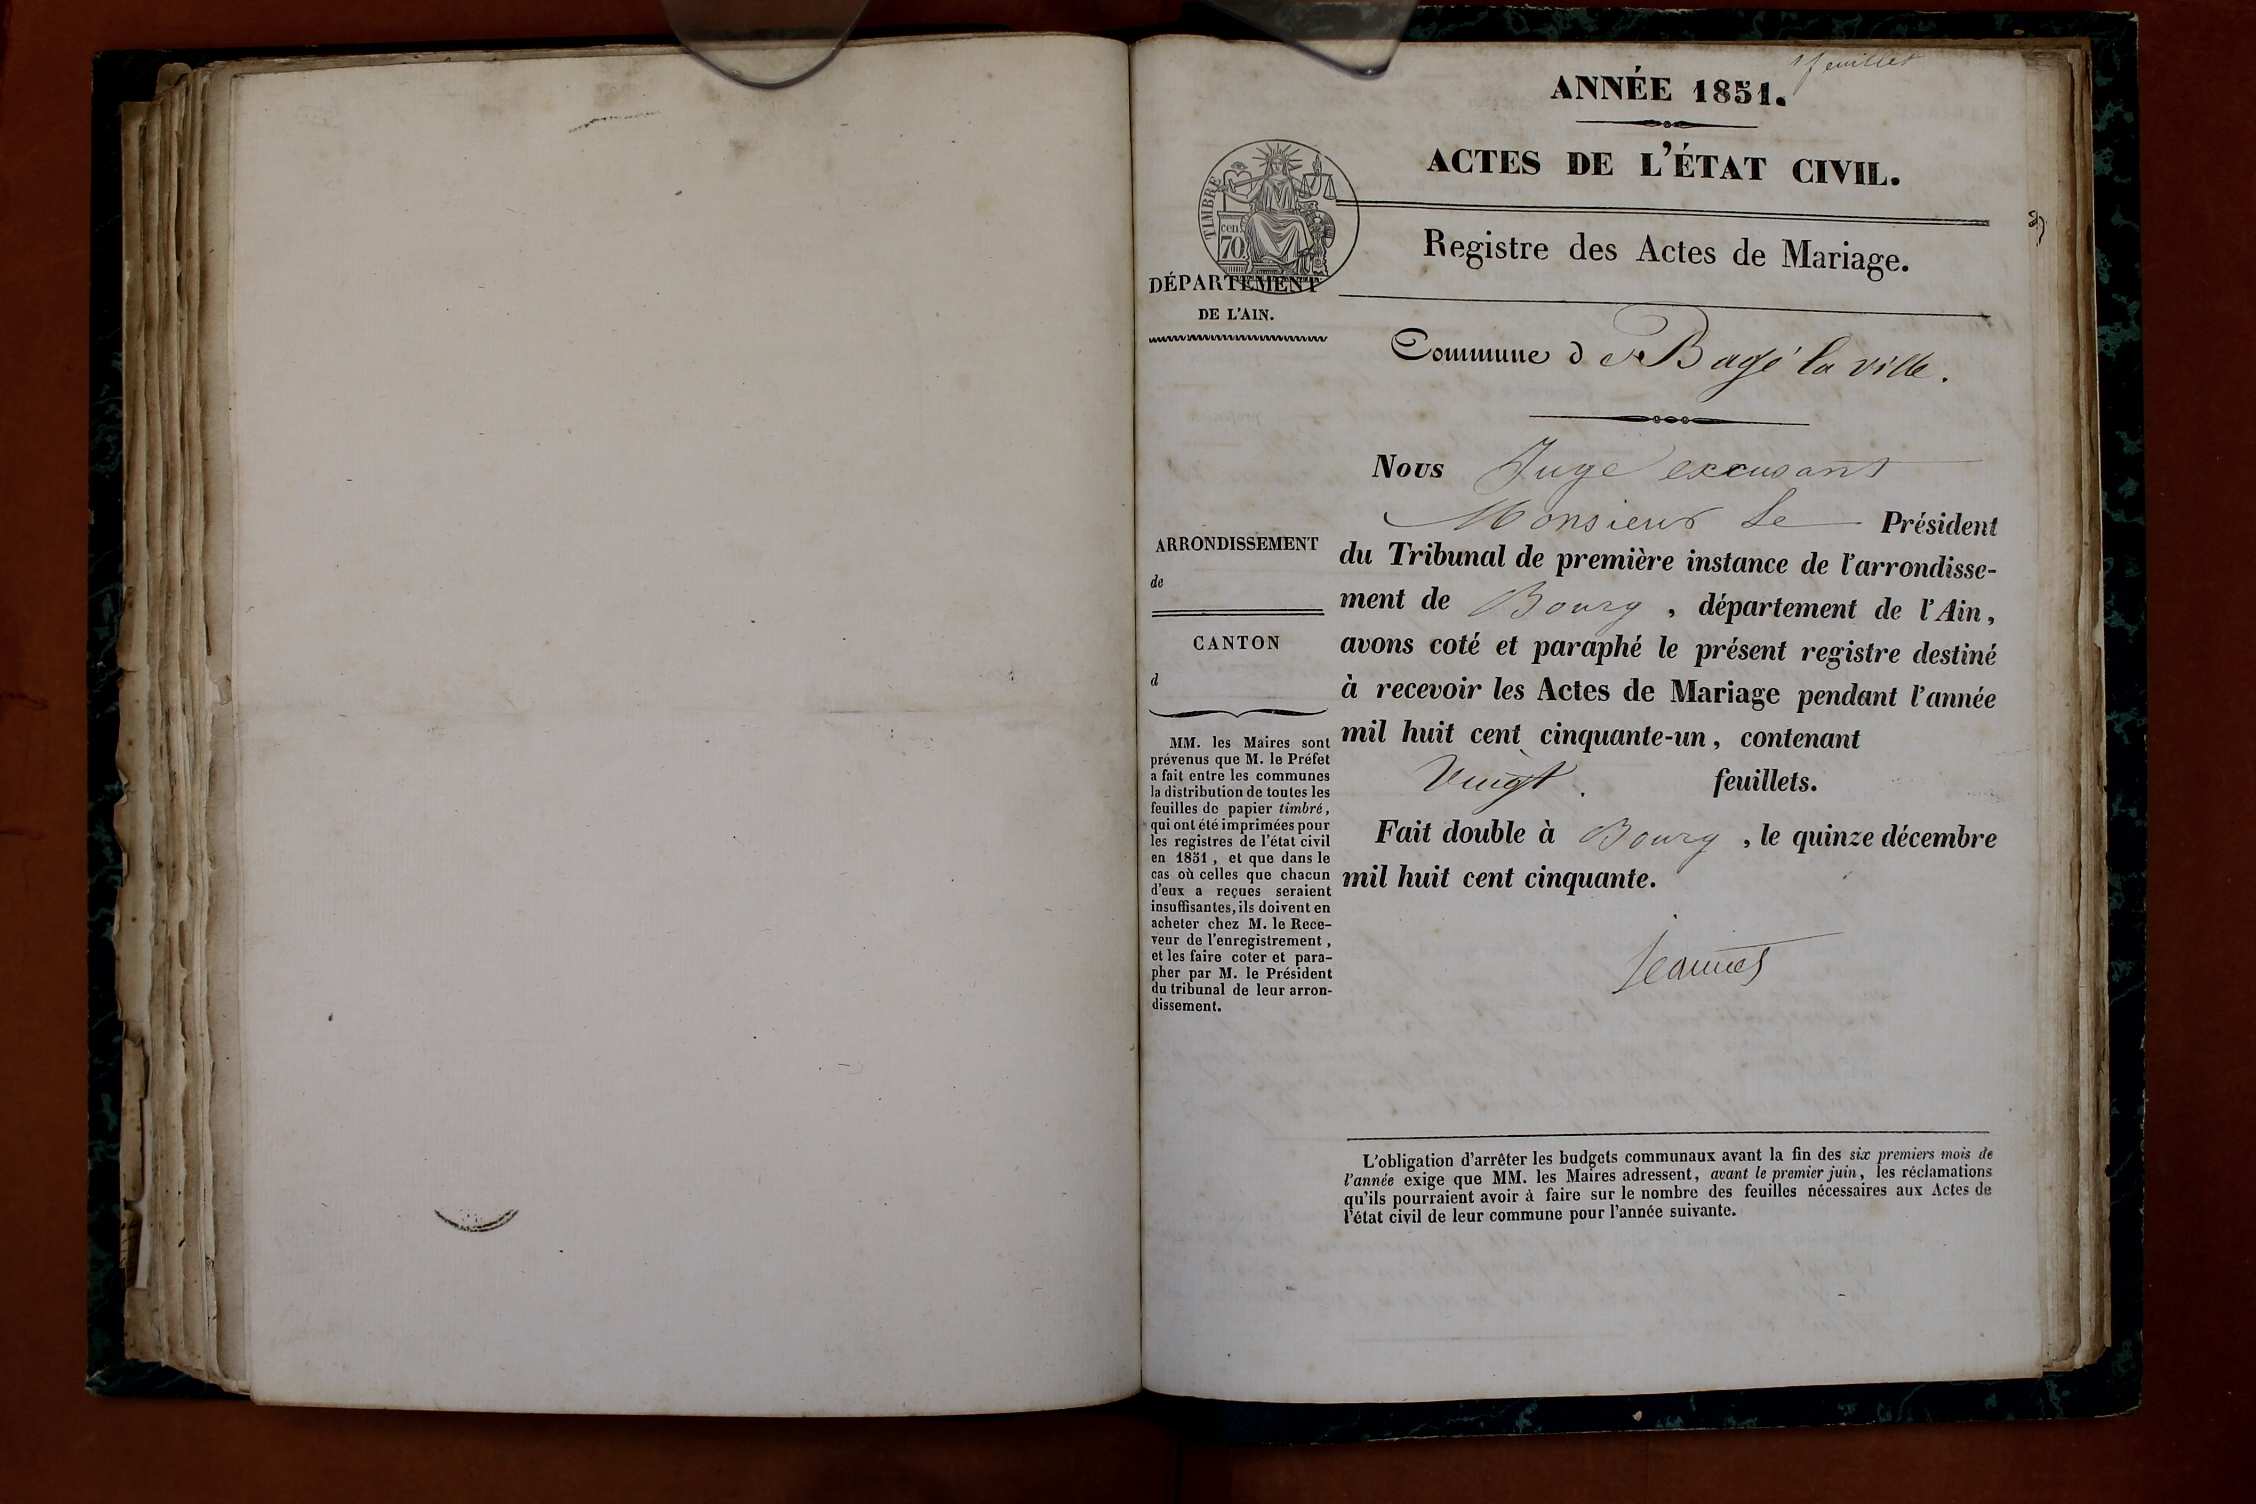 feuillet
ANNÉE 1851.
ACTES DE L'ÉTAT CIVIL.
Registre des Actes de Mariage.
TIMBRE
cen.
70
DÉPARTEMENT
DE L'AIN.
Commune de Bagé la ville.
Nous Juge excusant
Monsieur Le Président
du Tribunal de première instance de l'arrondisse-
ment de Bourg, département de l'Ain,
avons coté et paraphé le présent registre destiné
à recevoir les Actes de Mariage pendant l'année
mil huit cent cinquante-un, contenant
Vingt. feuillets.
Fait double à Bourg, le quinze décembre
mil huit cent cinquante.
ARRONDISSEMENT
de
CANTON
d
MM. les Maires sont
prévenus que M. le Préfet
a fait entre les communes
la distribution de toutes les
feuilles de papier timbré,
qui ont été imprimées pour
les registres de l'état civil
en 1851, et que dans le
cas où celles que chacun
d'eux a reçues seraient
insuffisantes, ils doivent en
acheter chez M. le Rece-
veur de l'enregistrement,
et les faire coter et para-
pher par M. le Président
du tribunal de leur arron-
dissement.
L'obligation d'arrêter les budgets communaux avant la fin des six premiers mois de
l'année exige que MM. les Maires adressent, avant le premier juin, les réclamations
qu'ils pourraient avoir à faire sur le nombre des feuilles nécessaires aux Actes de
l'état civil de leur commune pour l'année suivante.